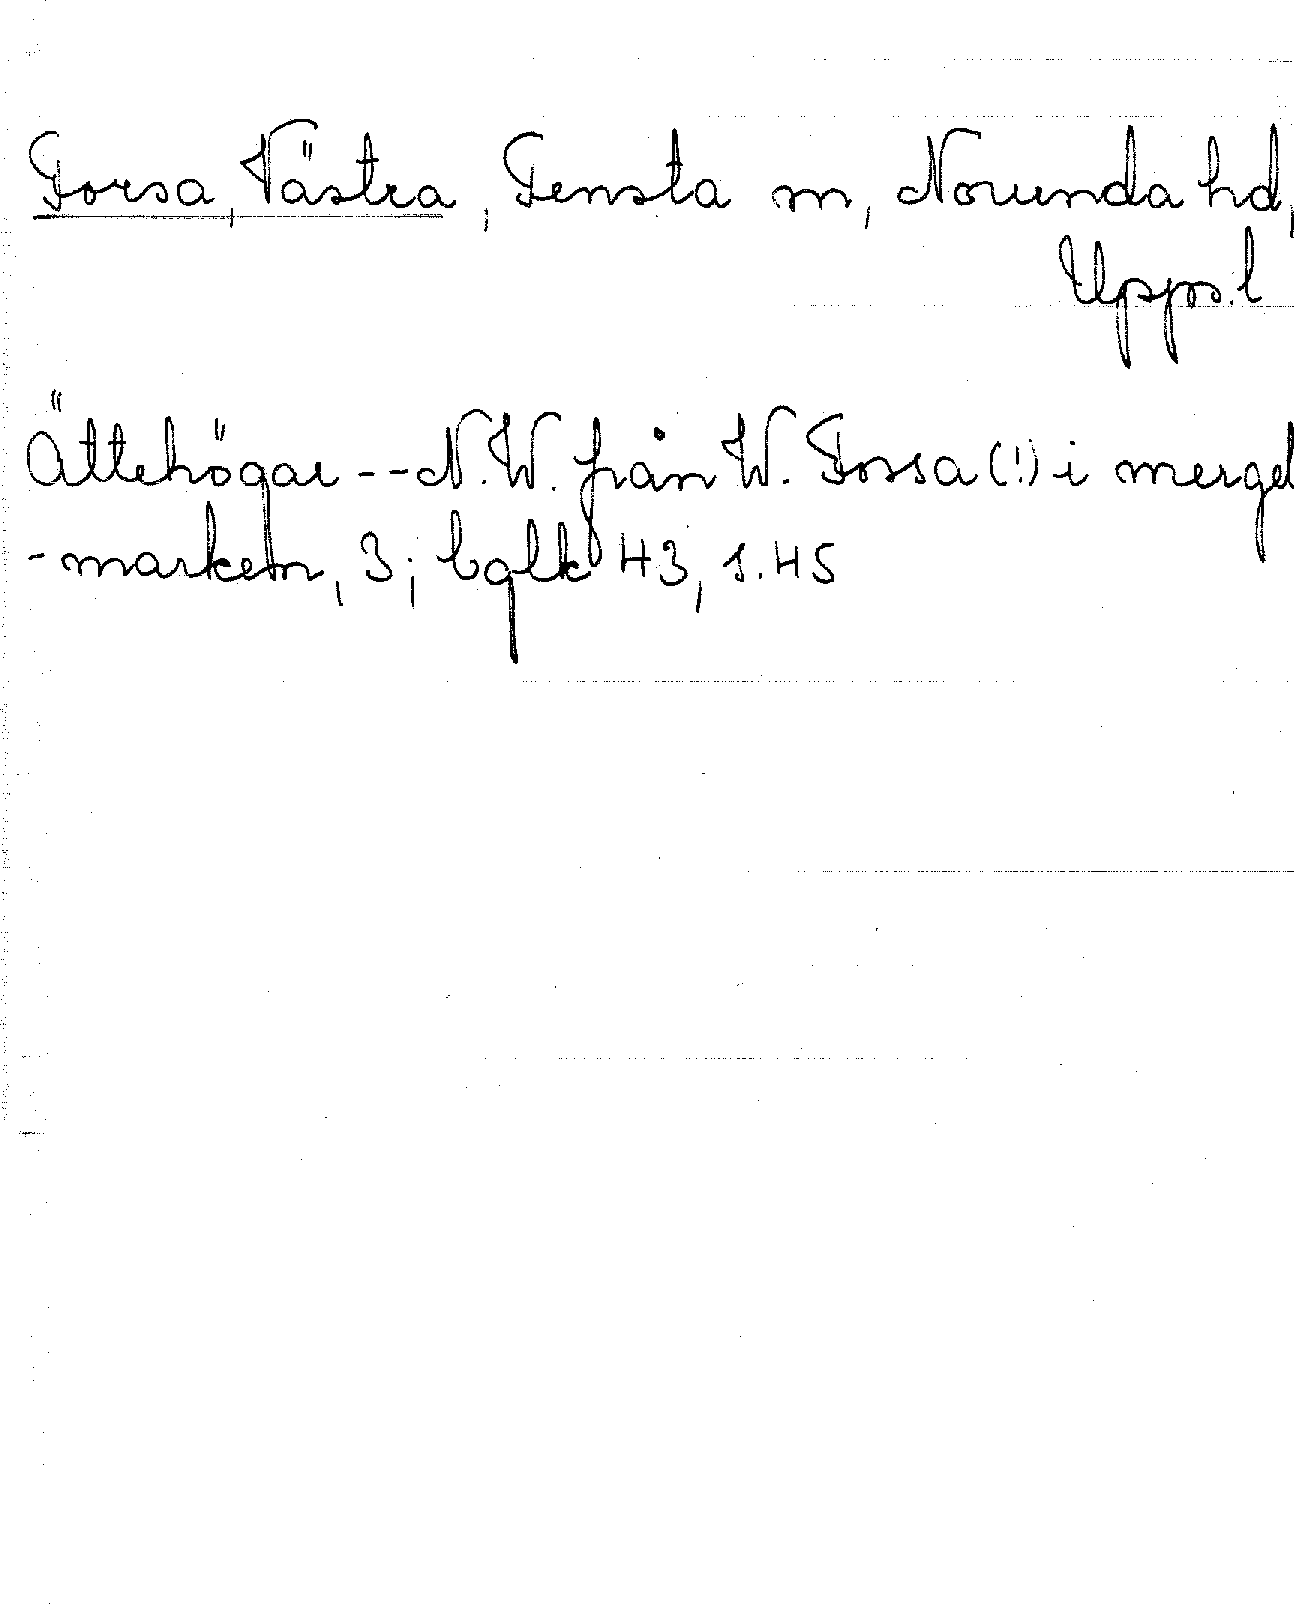 Forsa, Västra, Tensta sn, Norunda hd,
Upps. l
Ättehögar -- N.W. från W. Fossa (!) i mergel
-marken, 3; bglk 43, s. 45